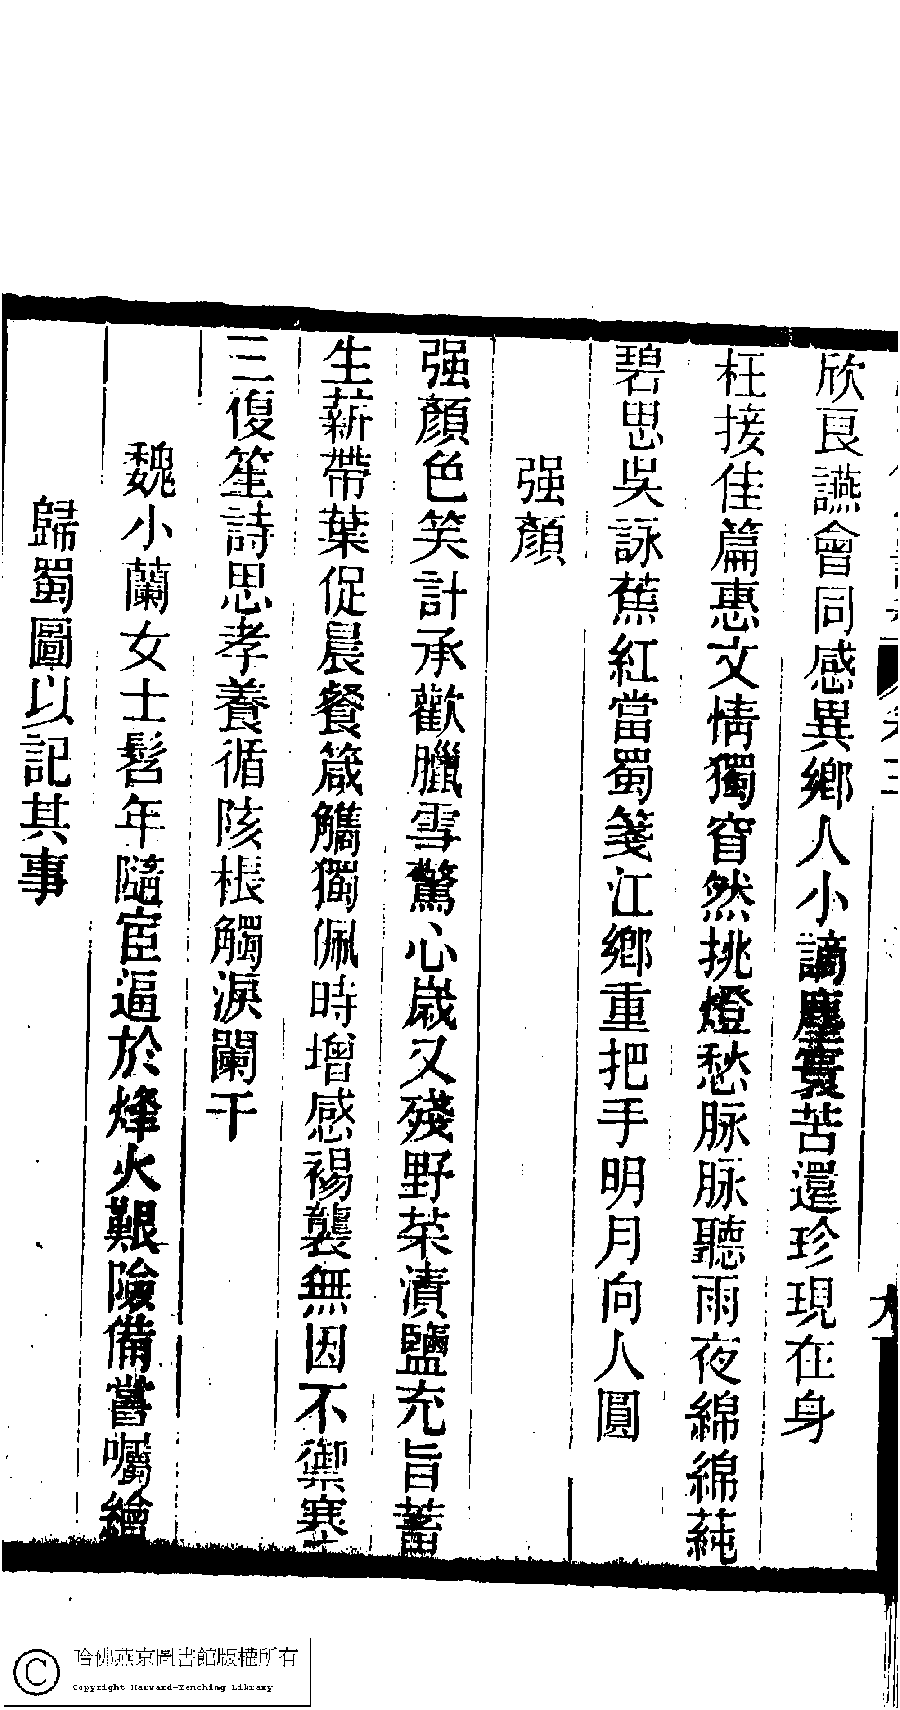 欣良讌會同感異鄉人小謫塵寰苦還珍現在身
枉接佳篇惠文情獨窅然挑燈愁脉脉聽雨夜綿綿蒓
碧思吳詠蕉紅當蜀箋江鄉重把手明月向人圓
强顏
强顏色笑計承歡臘雪驚心歲又殘野菜漬鹽充旨蓄
生薪帶葉促晨餐箴觿獨佩時增感裼襲無因不禦寒
三復笙詩思孝養循陔棖觸淚闌干
魏小蘭女士髫年隨宦逼於烽火艱險備嘗囑繪
歸蜀圖以記其事
哈佛燕京圖書館版權所有
Copyright Harvard-Yenching Library